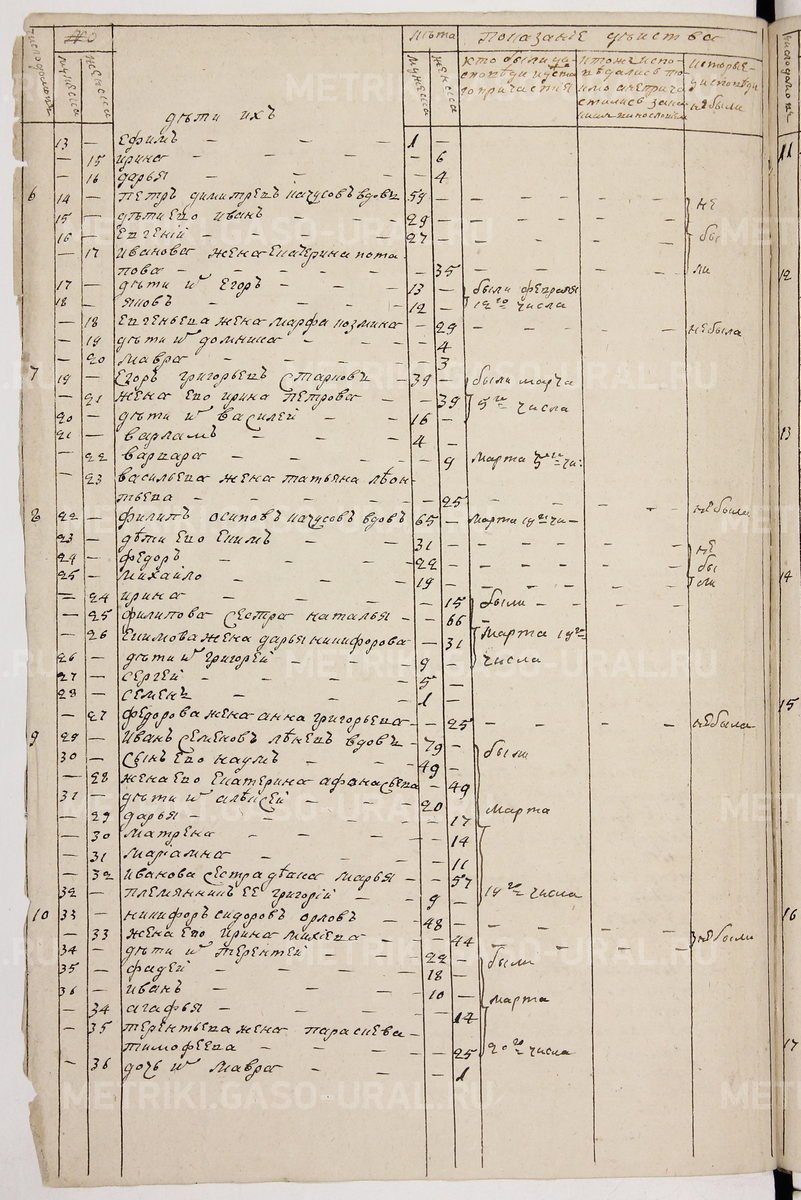 № Лѣта Показанiе дѣйства
число домовъ мужеска женска мужеска женска кто были у исповѣди и свята го причастiя
дѣти ихъ
13 — Ефимъ — — — 1 —
— 15 Ирина — — — — 6
— 16 дарья — — — — 4
6 14 — Петръ димитревъ вдовъ 59 — — — — не
15 — дѣти его Иванъ — — 29 — — — —
16 — Евгенiй — — — 27 — — — — бы
— 17 Иванова жена екатерина пота
пова — — — — — 35 — — — ли
17 — дѣти их Егоръ — — 13 — были февраля
18 — яковъ — — — 12 — 12го числа
— 18 Евгеньева жена марфа козмина — 29 — — — — не была
— 19 дѣти их домника — — — 4
— 20 мавра — — — — 3
7 19 — Егоръ григорьевъ Старковъ — 39 — были марта
— 21 жена его ирина петрова — — 39 5го числа
20 — дѣти их василей — — 16 —
21 — варламъ — — — 4 —
— 22 варвара — — — — 9 марта 5го чи:
— 23 васильева жена татьяна леон
тьева — — — — — 25 — — — — не была
8 22 — филипъ осиповъ вдовъ 65 — марта 19го чи—
23 — дѣти его Екимъ — — 31 — — — — не
24 — федоръ — — — 22 — — — — бы
25 — михайло — — — 19 — — — — ли
— 24 ирина — — — — 15 были — — —
— 25 филипова сестра наталья — — 66 —
— 26 Екимова жена дарья никифорова — 31 марта 19го
26 — дѣти их григорей — — 9 — числа
27 — сергей — — — — 5 —
28 — семенъ — — — 1 —
— 27 федорова жена анна григорьева — — 25 — — — — не была
9 29 — иванъ семеновъ вдовъ — 79 — были
30 — сынъ его наумъ — — 49 —
— 28 жена его екатерина афонасьева — 49
31 — дѣти их алѣксей — — 20 марта
— 29 дарья — — — — — 17
— 30 матрена — — — — 14
— 31 марiамна — — — 11
— 32 иванова сестра дѣвка марья — — 57
32 — племянникъ ее григорiй — — 9 — 19го числа
10 33 — никифоръ сидоровъ орловъ — — 48 — — — — —
— 33 жена его ирина михiева — — 44 — — — — не были
34 — дѣти их терентей — — 22 — были
35 — фадей — — — — 18 —
36 — иванъ — — — — 10 — марта
— 34 агафья — — — — 14
— 35 терентьева жена параскева
тимофеева — — — — — 25 20го числа
— 36 дочь их мавра — — — 1
число домовъ
11
12
13
14
15
16
17
METRIKI.GASO-URAL.RU